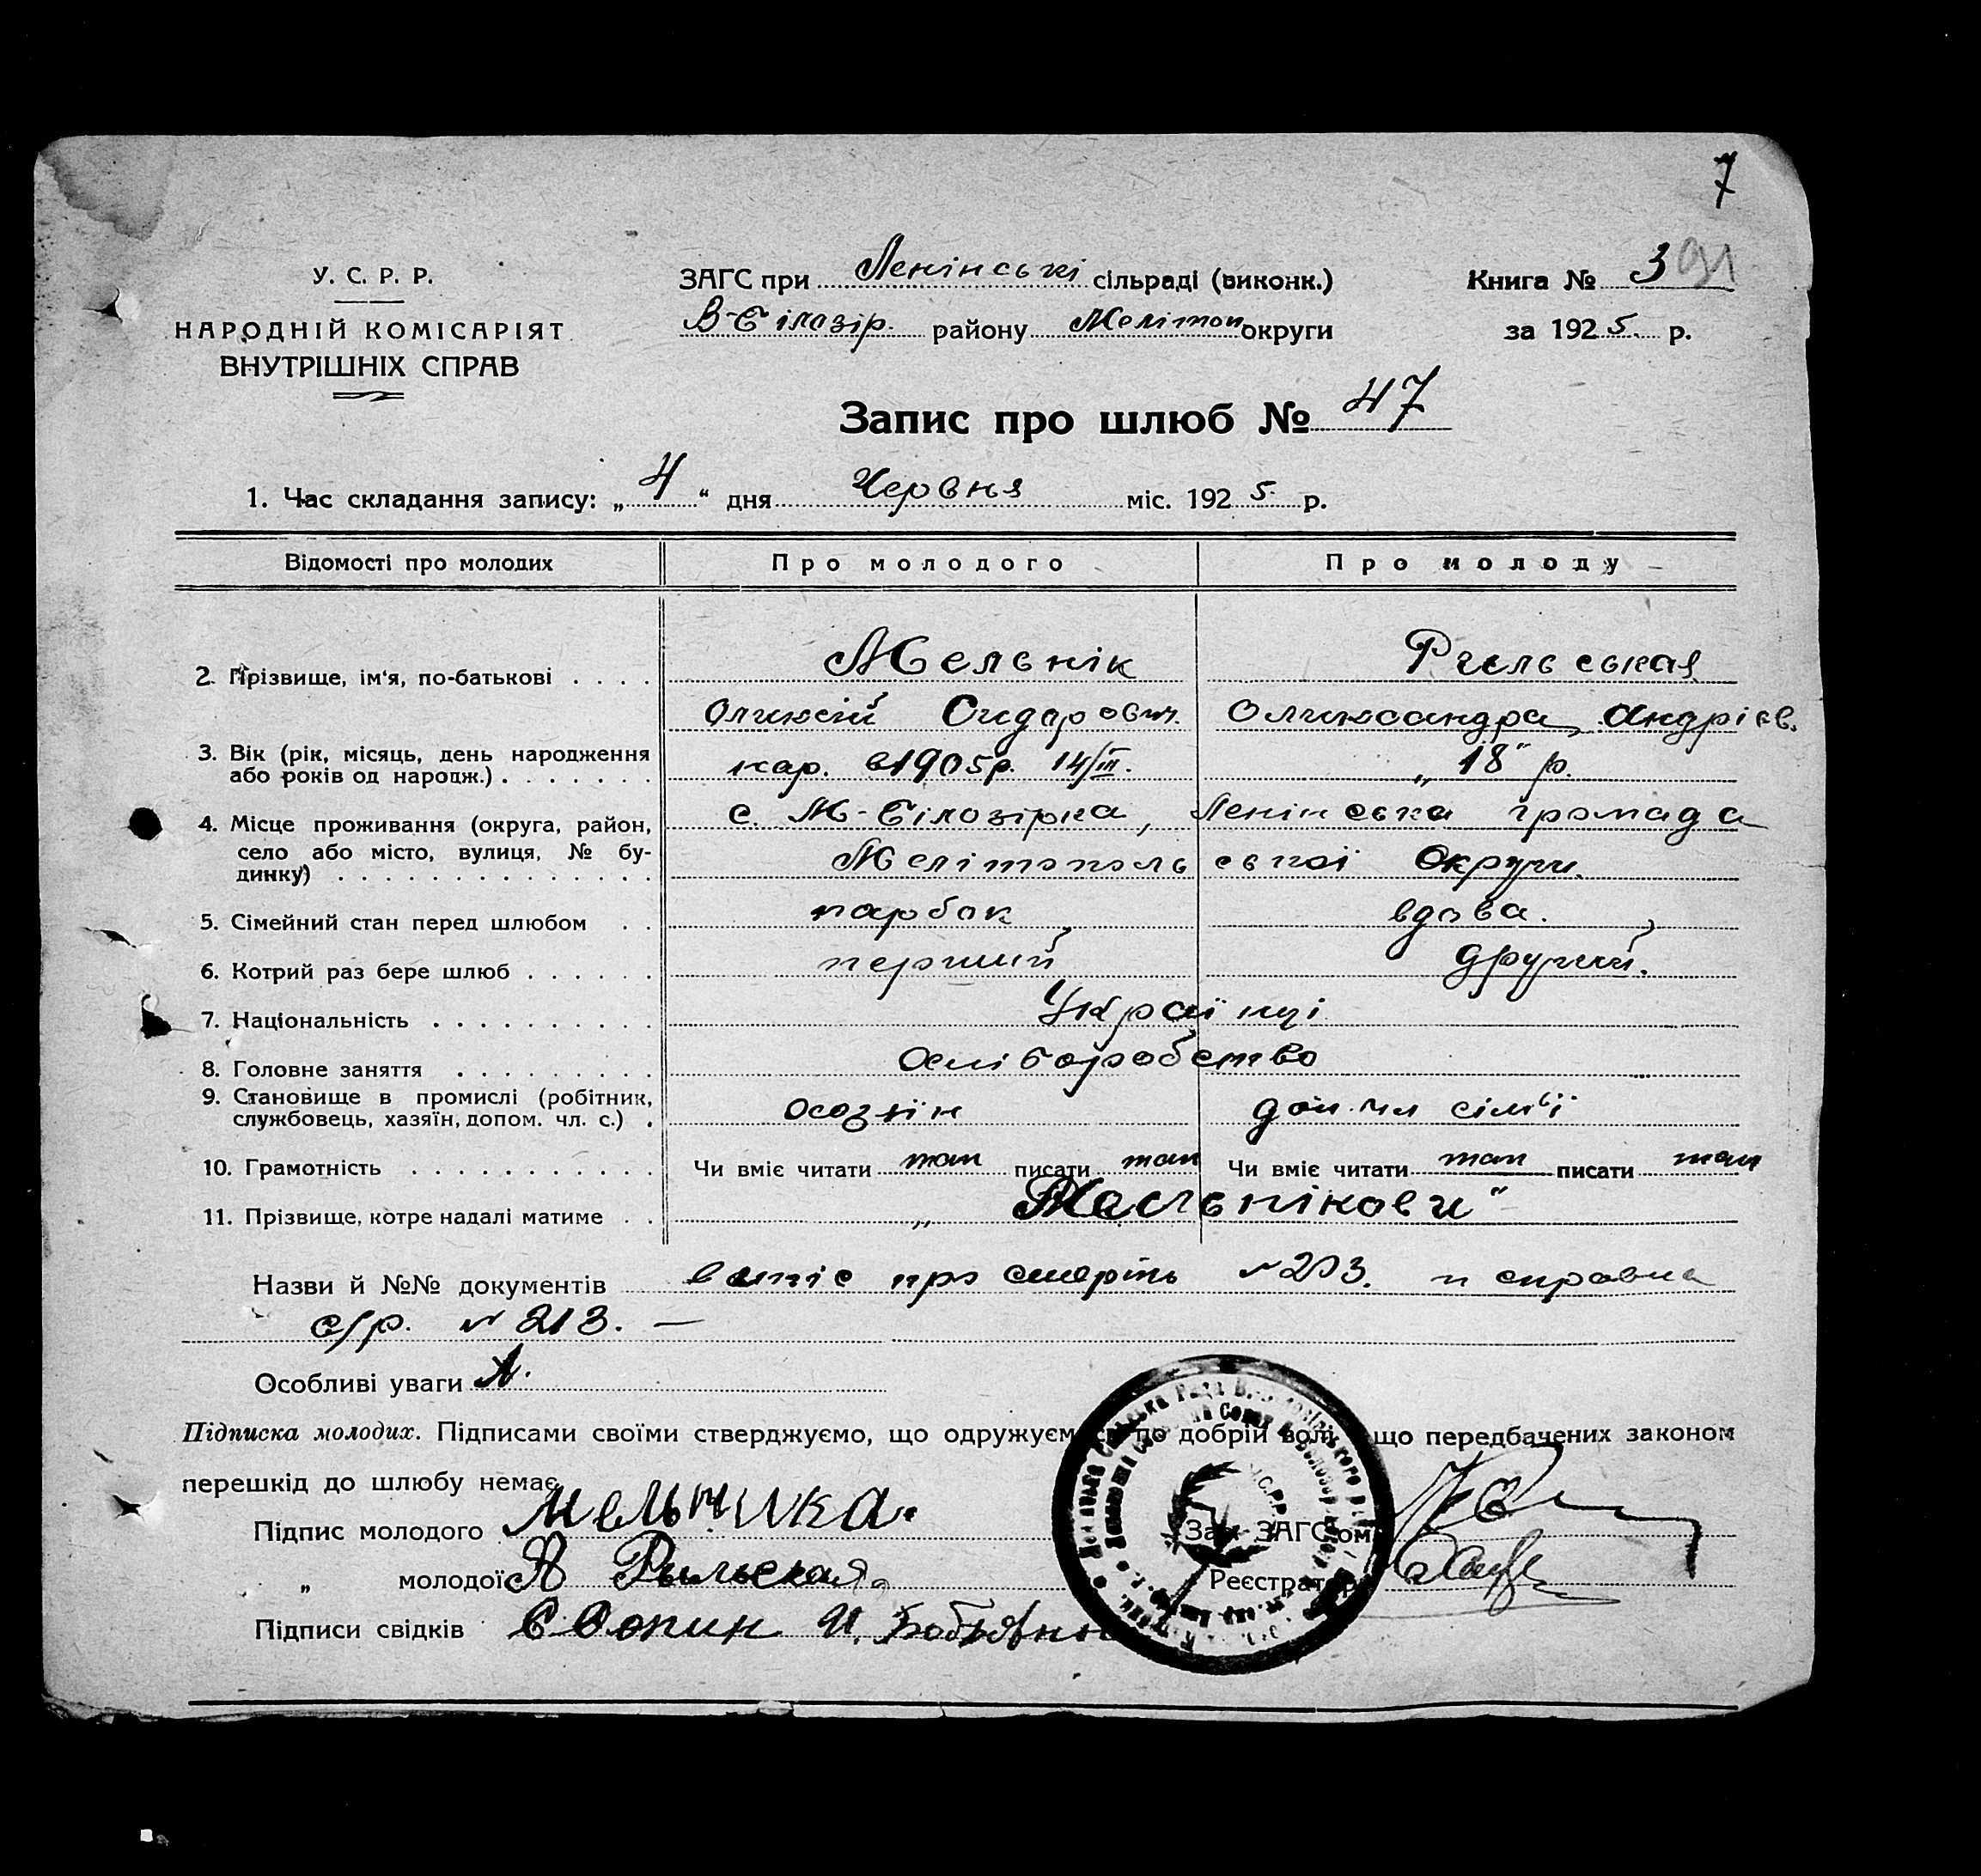 7
У. С. Р. Р.
НАРОДНІЙ КОМІСАРІЯТ
ВНУТРІШНІХ СПРАВ
ЗАГС при Ленінські сільраді (виконк.)
В-Білозір. району Мелітоп округи
Книга № 3
за 1925 р.
Запис про шлюб № 47
1. Час складання запису: „4“ дня Червня міс. 1925 р.
Відомості про молодих Про молодого Про молоду
2. Прізвище, ім'я, по-батькові . . . . Мельнік Рильськая
Оликсій Сидорович. Оликсандра Андрієв.
3. Вік (рік, місяць, день народження
або років од народж.) . . . . . . . нар. в 1905р. 14/III. „18" р.
4. Місце проживання (округа, район,
село або місто, вулиця, № бу-
динку) . . . . . . . . . . . . . .
с. М-Білозірка, Ленінська громада
Мелітопольської Округи.
5. Сімейний стан перед шлюбом . . парбок вдова.
6. Котрий раз бере шлюб . . . . . . перший другий.
7. Національність . . . . . . . . . . Українці
8. Головне заняття . . . . . . . . . хліборобство
9. Становище в промислі (робітник,
службовець, хазяїн, допом. чл. с.) .
доп. чл сім'ї
10. Грамотність . . . . . . . . . . . Чи вміє читати так писати так Чи вміє читати так писати так
11. Прізвище, котре надалі матиме . . „Мельнікови"
Назви й №№ документів про смерть № 203. и справка
с/р. № 213. —
Особливі уваги
Підписка молодих. Підписами своїми стверджуємо, що одружуємся по добрій волі, що передбачених законом
перешкід до шлюбу немає.
Підпис молодого Мельника.
„ молодої А Рыльская
Підписи свідків
Зав. ЗАГСом
Реєстратор